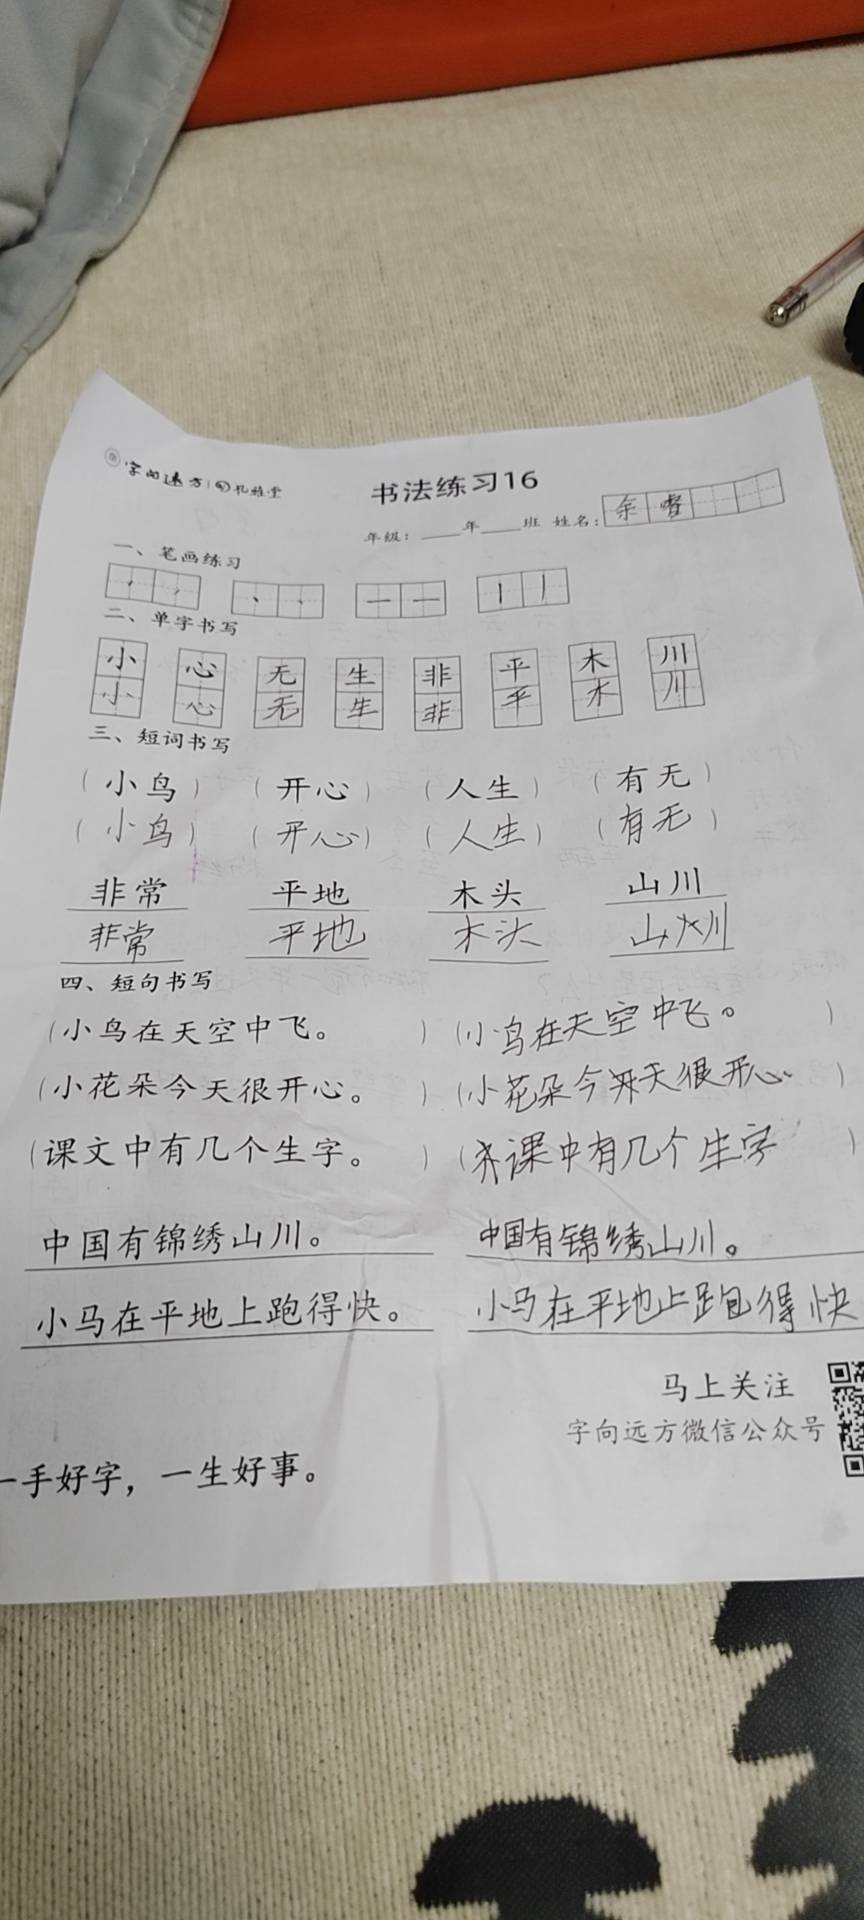 字向远方
书法练习16
年级：____年____班 姓名：余
一、笔画练习
二、单字书写
小 心 无 生 非 平 木 川
小 心 无 生 非 平 木 川
三、短词书写
（小鸟）（开心）（人生）（有无）
（小鸟）（开心）（人生）（有无）
非常 平地 木头 山川
非常 平地 木头 山川
四、短句书写
（小鸟在天空中飞。）（小鸟在天空中飞。）
（小花朵今天很开心。）（小花朵今天很开心.）
（课文中有几个生字。）（课中有几个生字）
中国有锦绣山川。 中国有锦绣山川。
小马在平地上跑得快。 小马在平地上跑得快
马上关注
字向远方微信公众号
一手好字，一生好事。